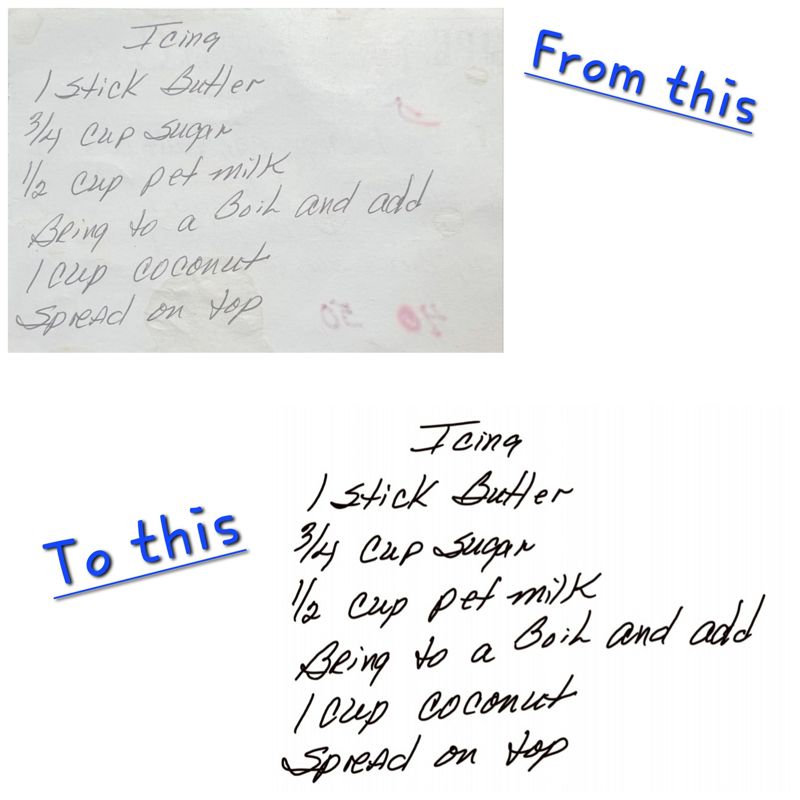 Icing
1 stick Butter
3/4 cup sugar
1/2 cup pet milk
Bring to a Boil and add
1 cup coconut
Spread on top
50 40
From this
To this
Icing
1 stick Butter
3/4 cup sugar
1/2 cup pet milk
Bring to a Boil and add
1 cup coconut
Spread on top